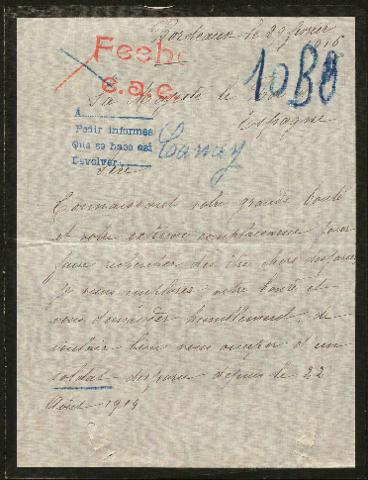 Bordeaux le 29 février
1916
Fecha
e.a.c.
1088
Sa Majesté le Roi
Espagne
A
Pedir informes
Que se hace así
Devolver
Sire
Connaissant votre grande bonté
et votre extrême complaisance pour
faire rechercher des être chers disparus
Je viens implorer votre bonté et
vous demander humblement de
vouloir bien vous occuper d'un
soldat disparu depuis le 22
Août 1914